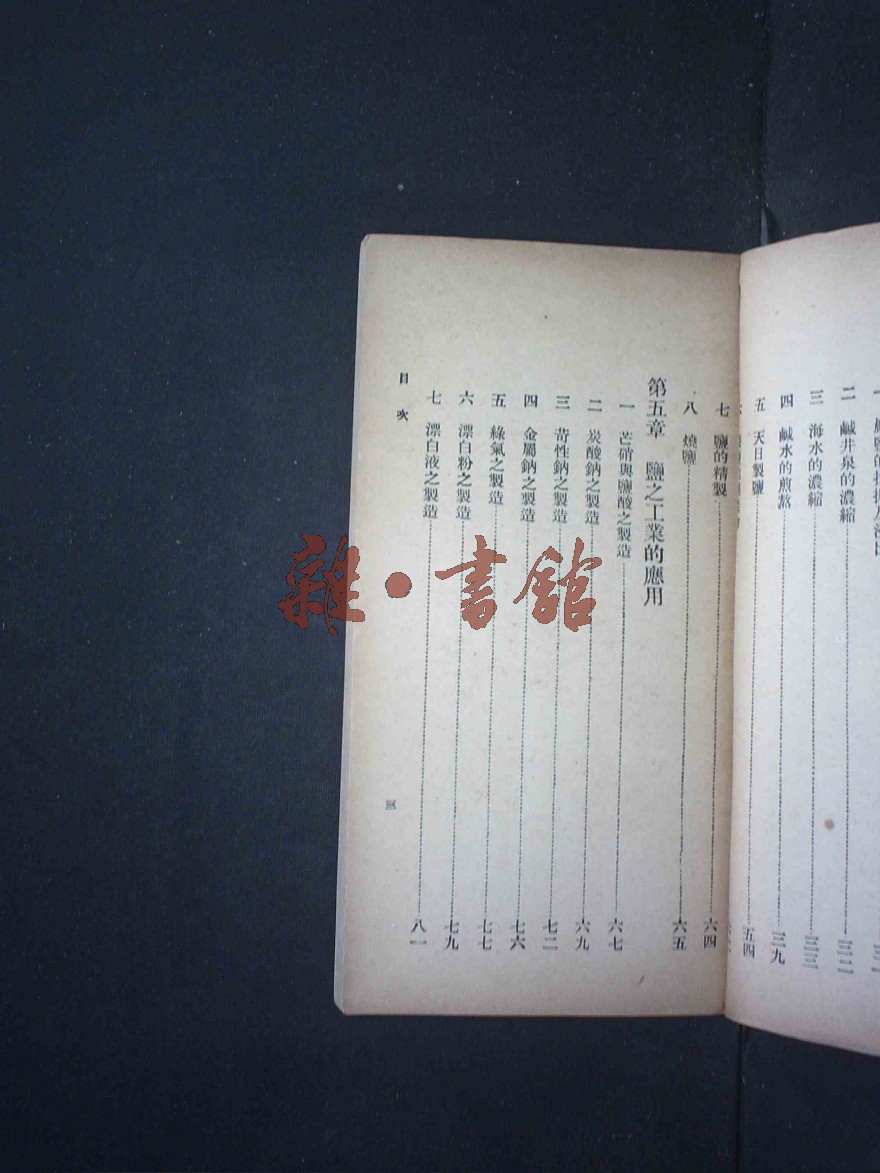 二 鹹井泉的濃縮 三二
三 海水的濃縮 三三
四 鹹水的煎熬 三九
五 天日製鹽 五四
七 鹽的精製 六四
八 燒鹽 六五
第五章 鹽之工業的應用
一 芒硝與鹽酸之製造 六七
二 炭酸鈉之製造 六九
三 苛性鈉之製造 七二
四 金屬鈉之製造 七六
五 綠氣之製造 七七
六 漂白粉之製造 七九
七 漂白液之製造 八一
目次
三
雜·書館